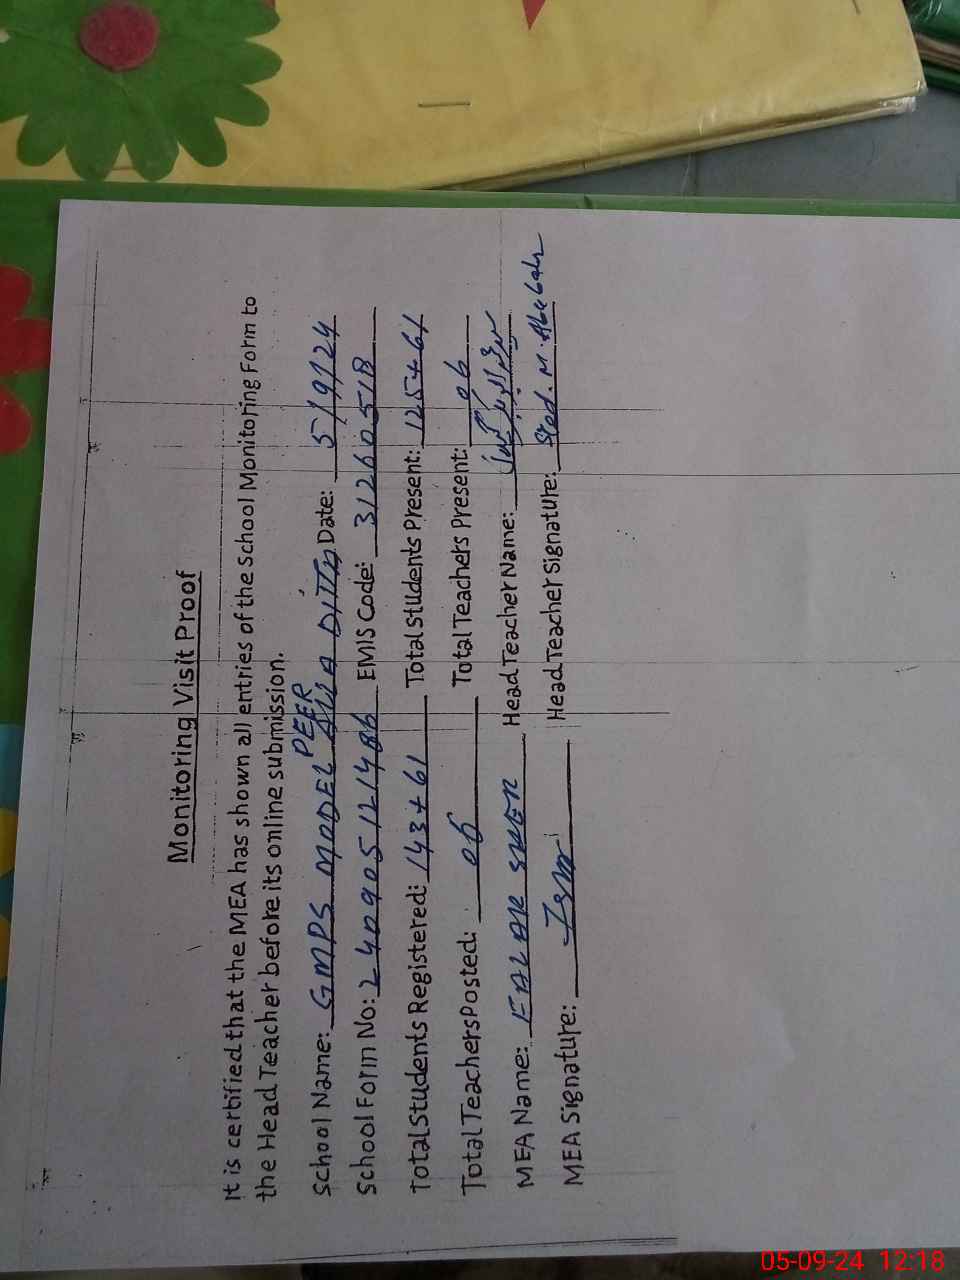 Monitoring Visit Proof
It is certified that the MEA has shown all entries of the School Monitoring Form to
the Head Teacher before its online submission.
PEER
School Name: GMPS MODEL DITTA Date: 5/9/24
School Form No: 240905121486 EMIS Code: 31260518
Total Students Registered: 143+61 Total Students Present: 125+61
Total Teachers Posted: 06 Total Teachers Present: 06
MEA Name: SHER Head Teacher Name:
MEA Signature: Head Teacher Signature: M. Abubakr
05-09-24 12:18